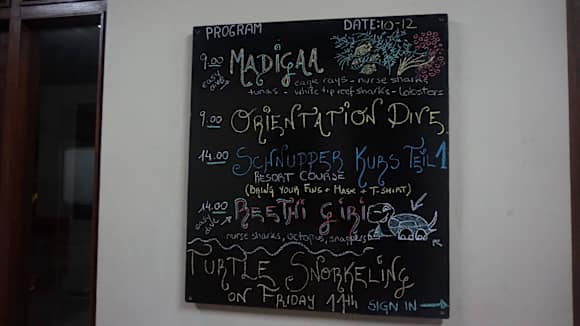 PROGRAM DATE: 10-12
9.00 MADIGAA
easy dive
eagle rays - nurse sharks
tunas - white tip reef sharks - lobsters
9.00 ORIENTATION DIVE
14.00 SCHNUPPER KURS TEIL 1
RESORT COURSE
(BRING YOUR FINS + MASK + T-SHIRT)
14.00 REETHI GIRI
easy dive
nurse sharks, octopus, snappers
TURTLE SNORKELING
ON FRIDAY 14th SIGN IN